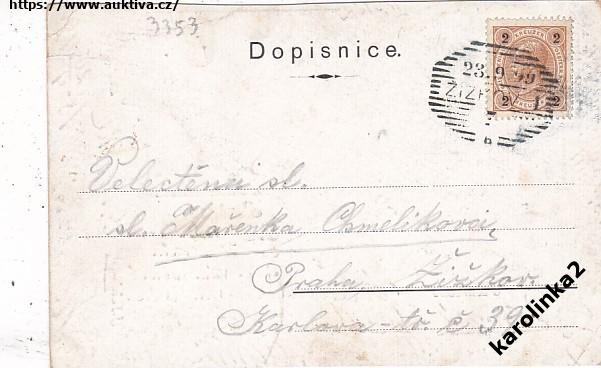 https://www.auktiva.cz/
3353
Dopisnice.
2 KREUZER 2
23.9 99
ŽIŽKOV 1
2 2
b
Velectěná sl.
sl. Mařenka Chmelíková,
Praha Žižkov.
Karlova tř. č 39
karolinka2